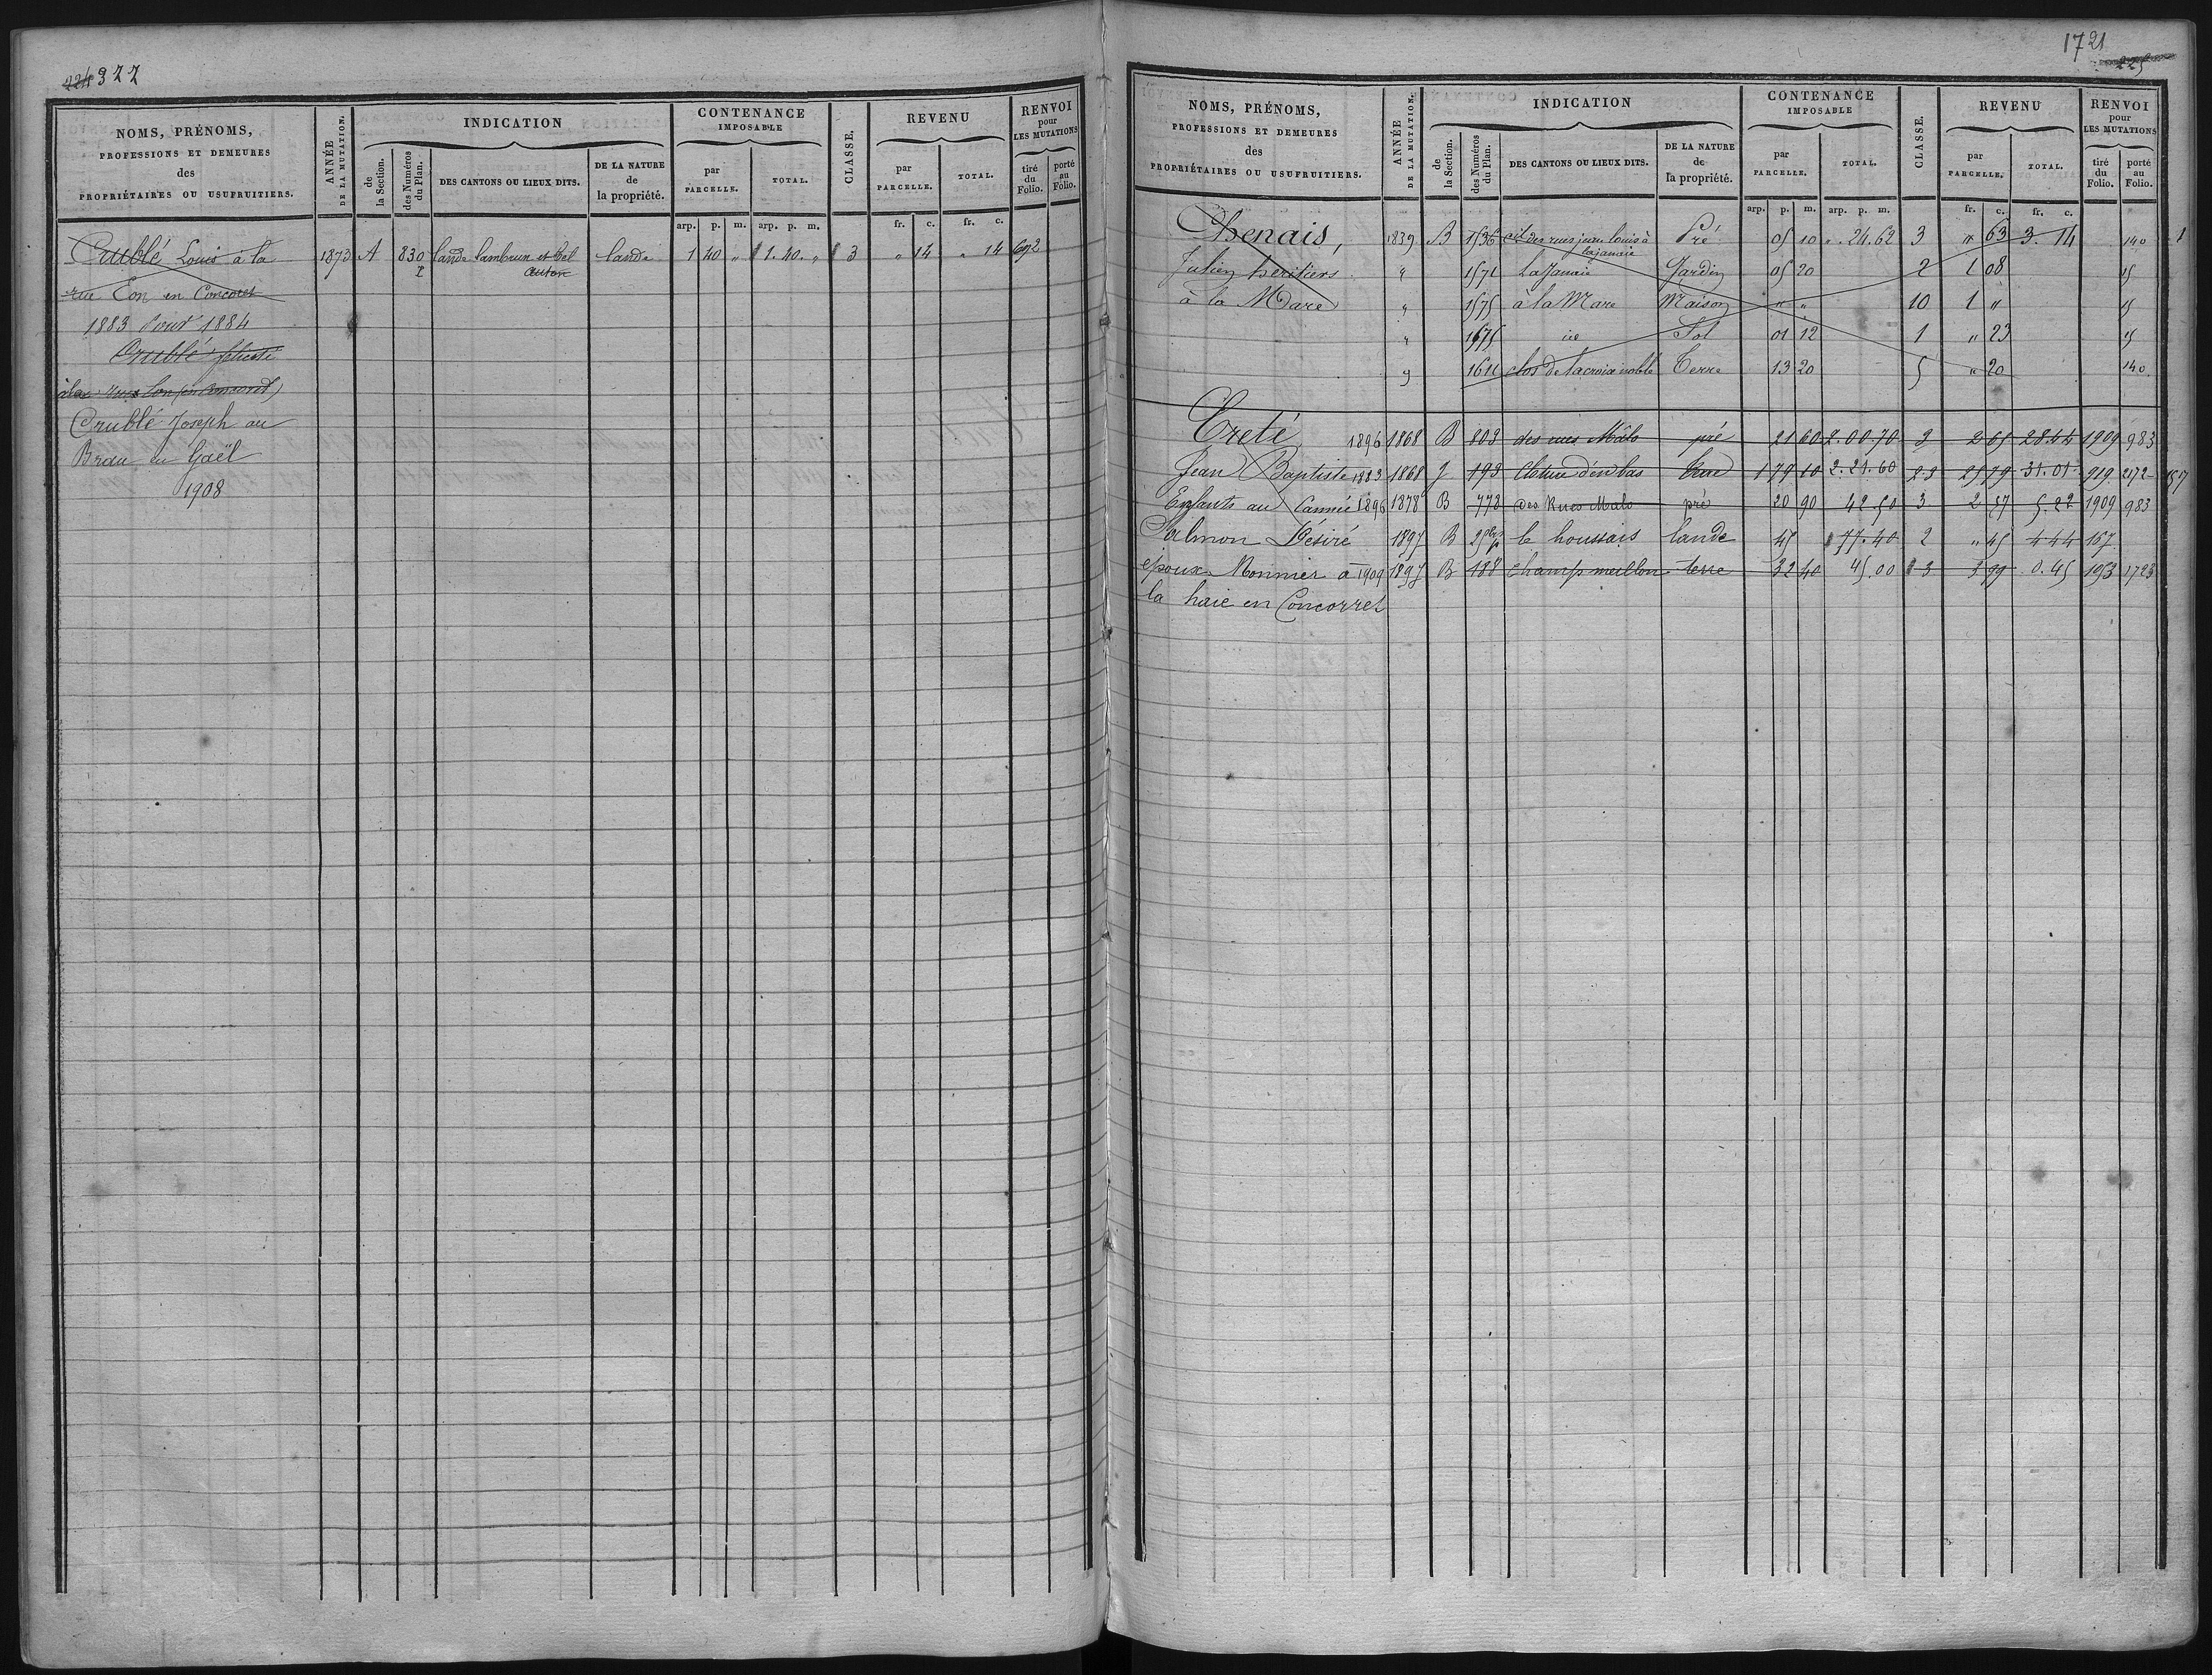 322
NOMS, PRÉNOMS,
PROFESSIONS ET DEMEURES
des
PROPRIÉTAIRES OU USUFRUITIERS.
ANNÉE
DE LA MUTATION.
INDICATION
de
la Section.
des Numéros
du Plan.
DES CANTONS OU LIEUX DITS.
DE LA NATURE
de
la propriété.
CONTENANCE
IMPOSABLE
par
PARCELLE.
TOTAL.
CLASSE.
REVENU
par
PARCELLE.
TOTAL.
RENVOI
pour
LES MUTATIONS
tiré
du
Folio.
porté
au
Folio.
arp. p. m. arp. p. m. fr. c. fr. c.
Crublé Louis à la 1873 A 830 lande Lambrun et Bel lande 1 40 " 1. 40. " 3 " 14 " 14 692
rue Eon en Concoret
1883 pour 1884
Crublé félicité
Crublé Joseph au
Brau en Gaël
1908
1721
225
NOMS, PRÉNOMS,
PROFESSIONS ET DEMEURES
des
PROPRIÉTAIRES OU USUFRUITIERS.
ANNÉE
DE LA MUTATION.
INDICATION
de
la Section.
des Numéros
du Plan.
DES CANTONS OU LIEUX DITS.
DE LA NATURE
de
la propriété.
CONTENANCE
IMPOSABLE
par
PARCELLE.
TOTAL.
CLASSE.
REVENU
par
PARCELLE.
TOTAL.
RENVOI
pour
LES MUTATIONS
tiré
du
Folio.
porté
au
Folio.
arp. p. m. arp. p. m. fr. c. fr. c.
Chenais, 1839 B 1536 des rues jean Louis à Pré 05 10 " . 24. 62 3 " 63 3. 14 140 1
la janaie
Julien héritiers " 1571 La Janaie Jardin 05 20 2 1 08 15
à la Mare " 1575 à la Mare Maison " " 10 1 " 15
" 1575 id Sol 01 12 1 " 23 15
" 1611 clos de la croix noble Terre 13 20 5 " 20 140
Creté 1896 1868 B 803 des rues Mâlo pré 21 60 2. 00. 70 2 65 28. 44 1909 983
Jean Baptiste 1883 1868 J 193 Cloture d'en bas 1 79 10 2. 21. 60 2 3 25 79 31. 01 919 2172 1517
Enfants au Cannée 1896 1878 B 778 des Rues Malo pré 20 90 42. 50 3 2 57 5. 22 1909 983
Salmon Désiré 1897 B le houssais lande 45 77. 40 2 " 45 4 44 167
époux Monnier à 1909 1897 B 188 champ meillon terre 32 40 45. 00 3 3 99 0. 45 193 1723
la haie en Concorret